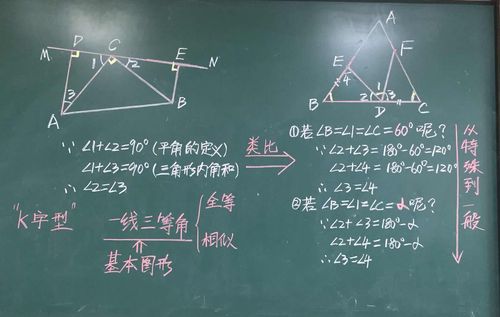 M D C E N
1 2
3
A B
A
E F
4 1
B 2 3 C
D
∵ ∠1+∠2=90° (平角的定义)
∠1+∠3=90° (三角形内角和)
∴ ∠2=∠3
类比
①若∠B=∠1=∠C=60°呢?
∵ ∠2+∠3=180°-60°=120°
∠2+∠4=180°-60°=120°
∴ ∠3=∠4
②若∠B=∠1=∠C=α呢?
∵ ∠2+∠3=180°-α
∠2+∠4=180°-α
∴ ∠3=∠4
从特殊到一般
"K字型"
一线三等角
全等
相似
基本图形